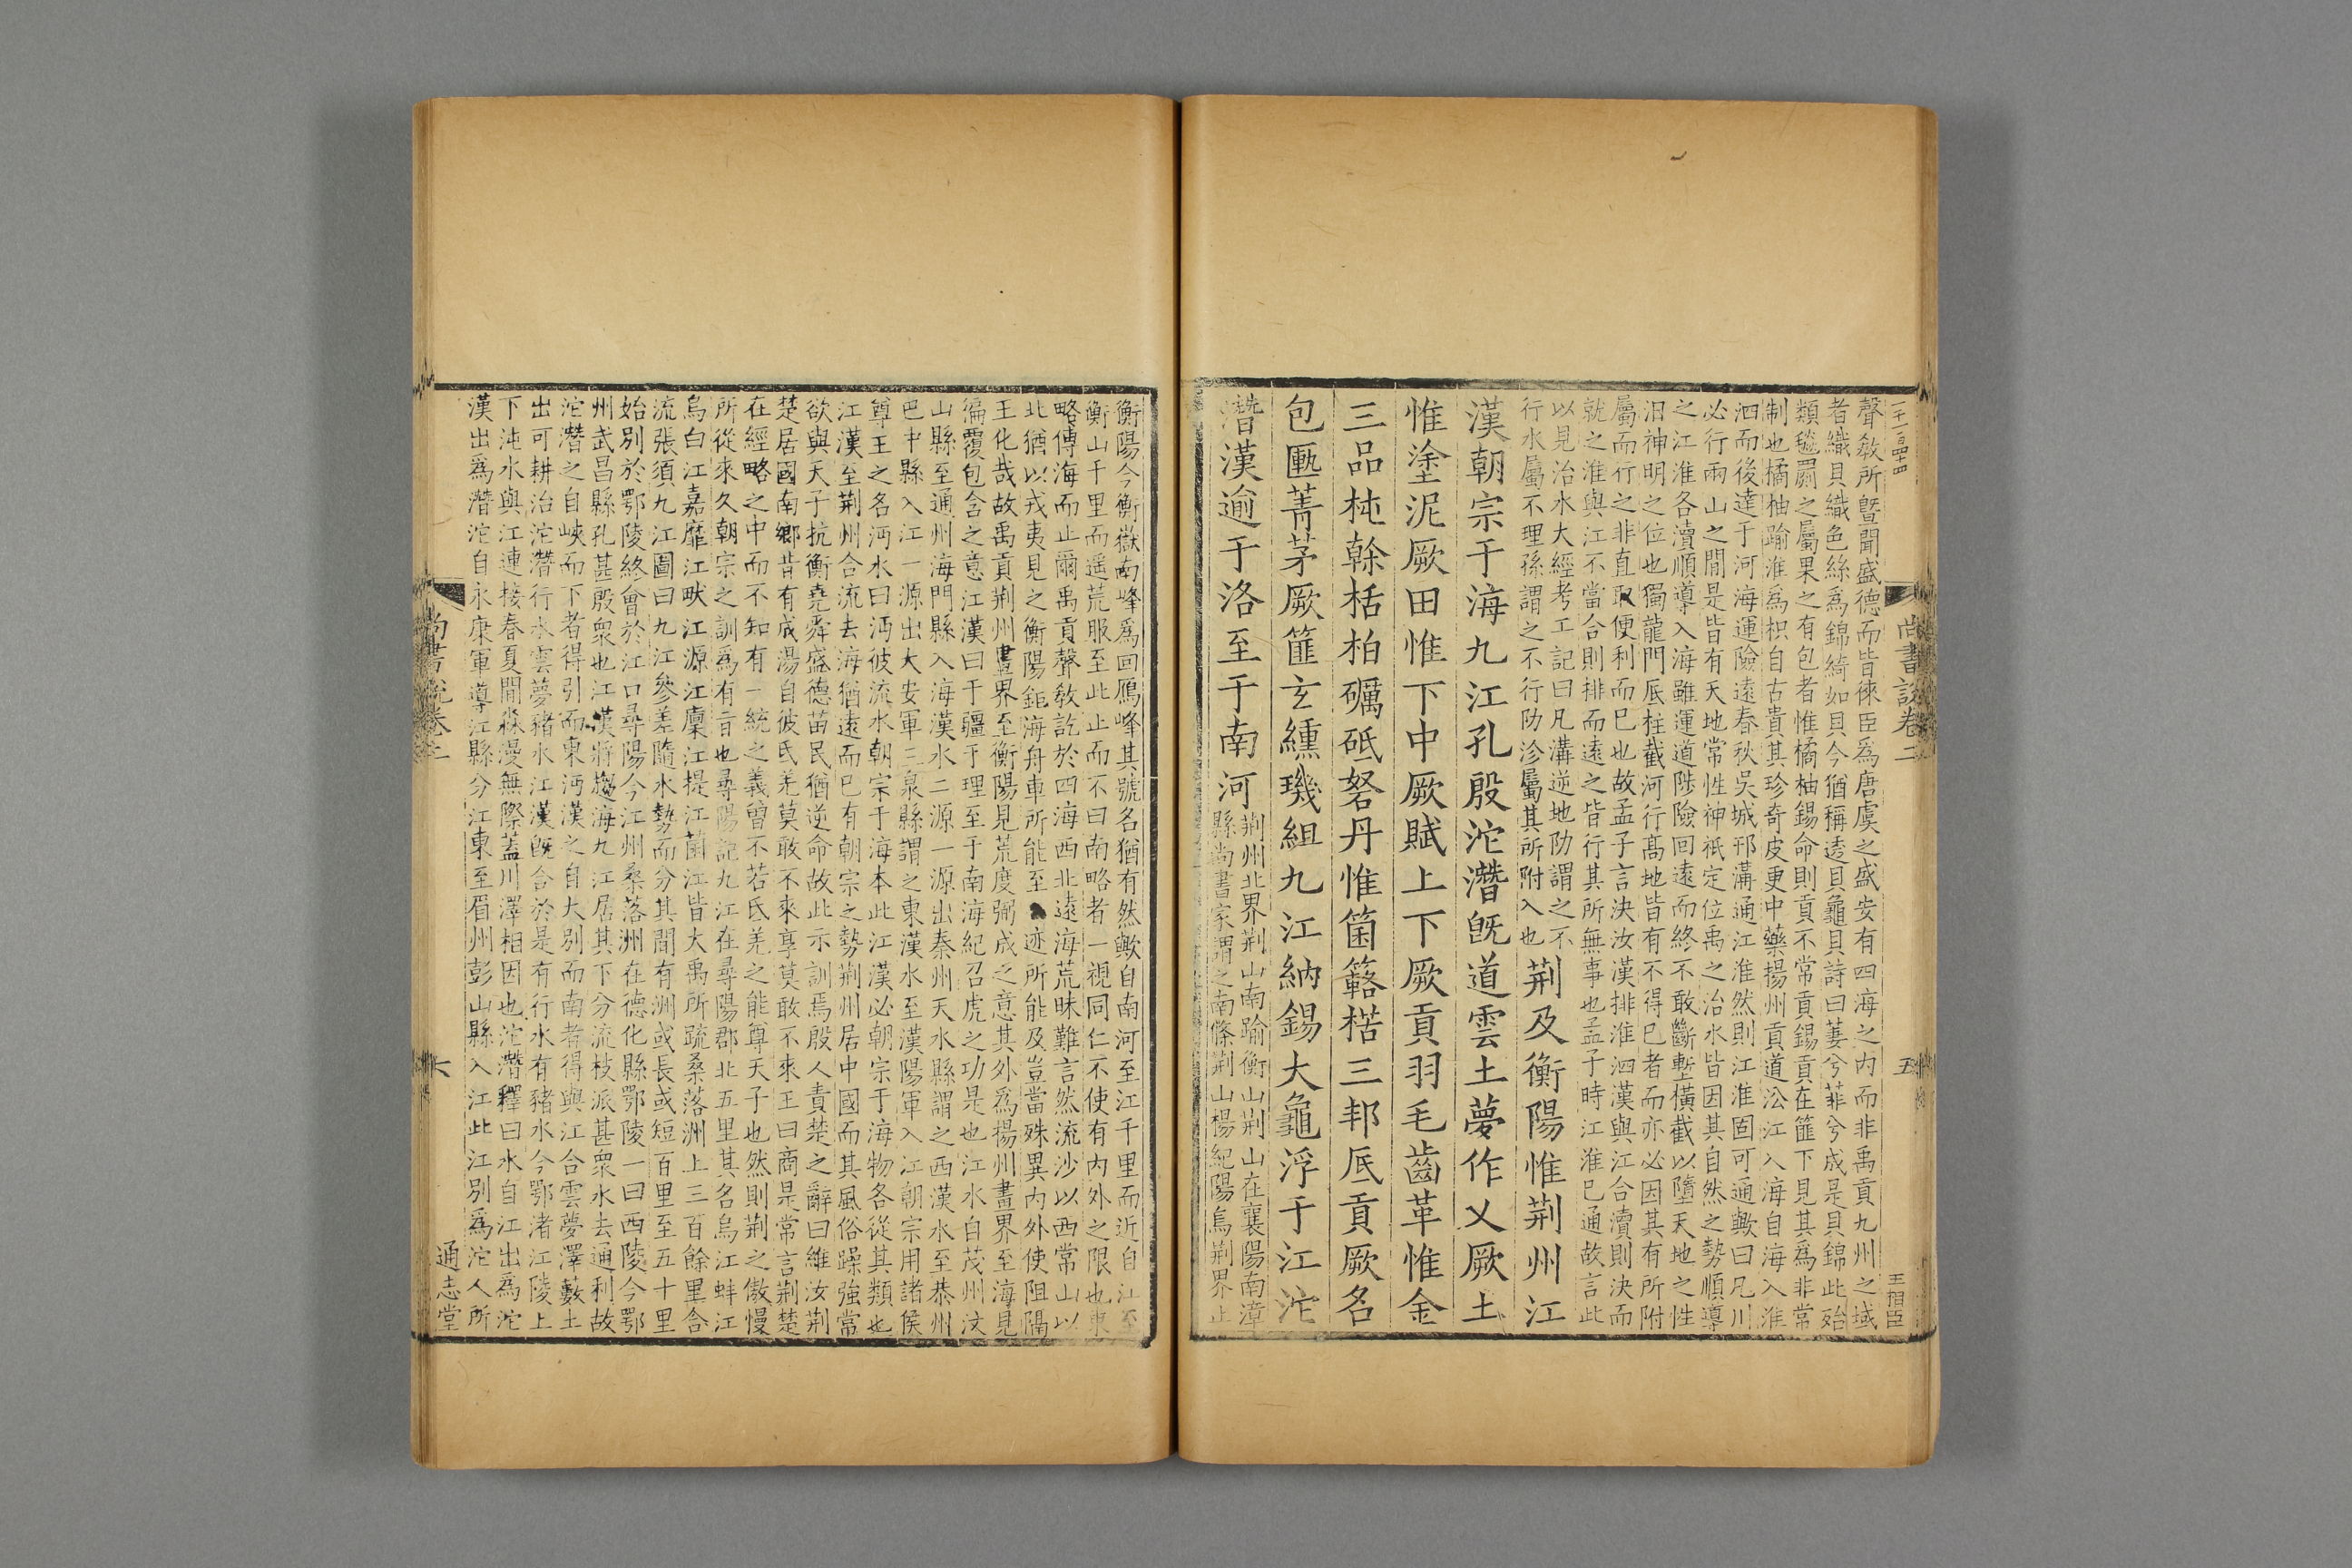 尚書説卷二
五
王相臣
聲敎所暨聞盛德而皆徠臣爲唐虞之盛安有四海之内而非禹貢九州之域
者織貝織色絲爲錦綺如貝今猶稱透貝龜貝詩曰萋兮菲兮成是貝錦此殆
類毯罽之屬果之有包者惟橘柚錫命則貢不常貢錫貢在篚下見其爲非常
制也橘柚踰淮爲枳自古貴其珍奇皮更中藥揚州貢道㳂江入海自海入淮
泗而後達于河海運險遠春秋吳城邗溝通江淮然則江淮固可通歟曰凡川
必行兩山之間是皆有天地常性神祇定位禹之治水皆因其自然之勢順導
之江淮各瀆順導入海雖運道陟險回遠而終不敢斷塹橫截以墮天地之性
汨神明之位也獨龍門厎柱截河行髙地皆有不得已者而亦必因其有所附
屬而行之非直取便利而已也故孟子言決汝漢排淮泗漢與江合瀆則決而
就之淮與江不當合則排而遠之皆行其所無事也孟子時江淮已通故言此
以見治水大經考工記曰凡溝逆地阞謂之不
行水屬不理孫謂之不行阞沴屬其所附入也
荆及衡陽惟荆州江
漢朝宗于海九江孔殷沱潛旣道雲土夢作乂厥土
惟塗泥厥田惟下中厥賦上下厥貢羽毛齒革惟金
三品杶榦栝柏礪砥砮丹惟箘簵楛三邦厎貢厥名
包匭菁茅厥篚玄纁璣組九江納錫大龜浮于江沱
潛漢逾于洛至于南河
荆州北界荆山南踰衡山荆山在襄陽南漳
縣尚書家謂之南條荆山楊紀陽烏荆界止
衡陽今衡嶽南峰爲回鴈峰其號名猶有然歟自南河至江千里而近自江至
衡山千里而遥荒服至此止而不曰南略者一視同仁不使有内外之限也東
略傳海而止爾禹貢聲敎訖於四海西北遠海荒昧難言然流沙以西常山以
北猶以戎夷見之衡陽鉅海舟車所能至迹所能及豈當殊異内外使阻隔
王化哉故禹貢荆州畫界至衡陽見荒度弼成之意其外爲揚州畫界至海見
徧覆包含之意江漢曰于疆于理至于南海紀召虎之功是也江水自茂州汶
山縣至通州海門縣入海漢水二源一源出秦州天水縣謂之西漢水至恭州
巴中縣入江一源出大安軍三泉縣謂之東漢水至漢陽軍入江朝宗用諸侯
尊王之名沔水曰沔彼流水朝宗于海本此江漢必朝宗于海物各從其類也
江漢至荆州合流去海猶遠而已有朝宗之勢荆州居中國而其風俗躁強常
欲與天子抗衡堯舜盛德苗民猶逆命故此示訓焉殷人責楚之辭曰維汝荆
楚居國南鄉昔有成湯自彼氐羌莫敢不來享莫敢不來王曰商是常言荆楚
在經略之中而不知有一統之義曾不若氐羌之能尊天子也然則荆之傲慢
所從來久朝宗之訓爲有旨也尋陽記九江在尋陽郡北五里其名烏江蚌江
烏白江嘉靡江畎江源江廩江提江箘江皆大禹所疏桑落洲上三百餘里合
流張須九江圖曰九江參差隨水勢而分其間有洲或長或短百里至五十里
始別於鄂陵終會於江口尋陽今江州桑落洲在德化縣鄂陵一曰西陵今鄂
州武昌縣孔甚殷衆也江漢將趨海九江居其下分流枝派甚衆水去通利故
沱潛之自峽而下者得引而東沔漢之自大別而南者得與江合雲夢澤藪土
出可耕治沱潛行水雲夢豬水江漢旣合於是有行水有豬水今鄂渚江陵上
下沌水與江連接春夏間淼漫無際蓋川澤相因也沱潛釋曰水自江出爲沱
漢出爲潛沱自永康軍導江縣分江東至眉州彭山縣入江此江別爲沱人所
尚書説卷二
六
通志堂